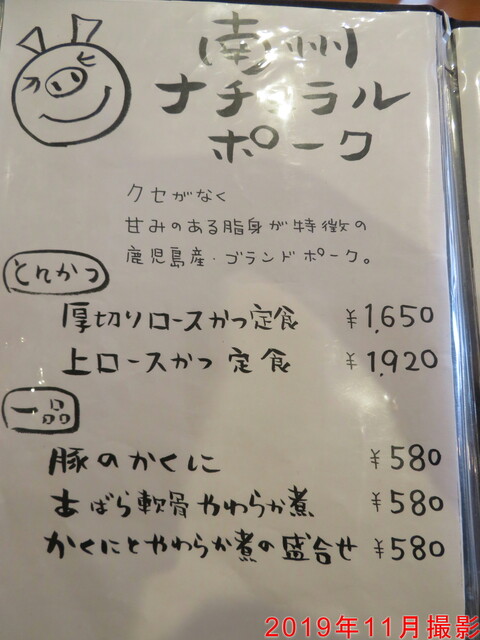 南州
ナチュラル
ポーク
クセがなく
甘みのある脂身が特徴の
鹿児島産・ブランドポーク。
とんかつ
厚切りロースかつ定食 ¥1,650
上ロースかつ定食 ¥1,920
一品
豚のかくに ¥580
あばら軟骨やわらか煮 ¥580
かくにとやわらか煮の盛合せ ¥580
2019年11月撮影